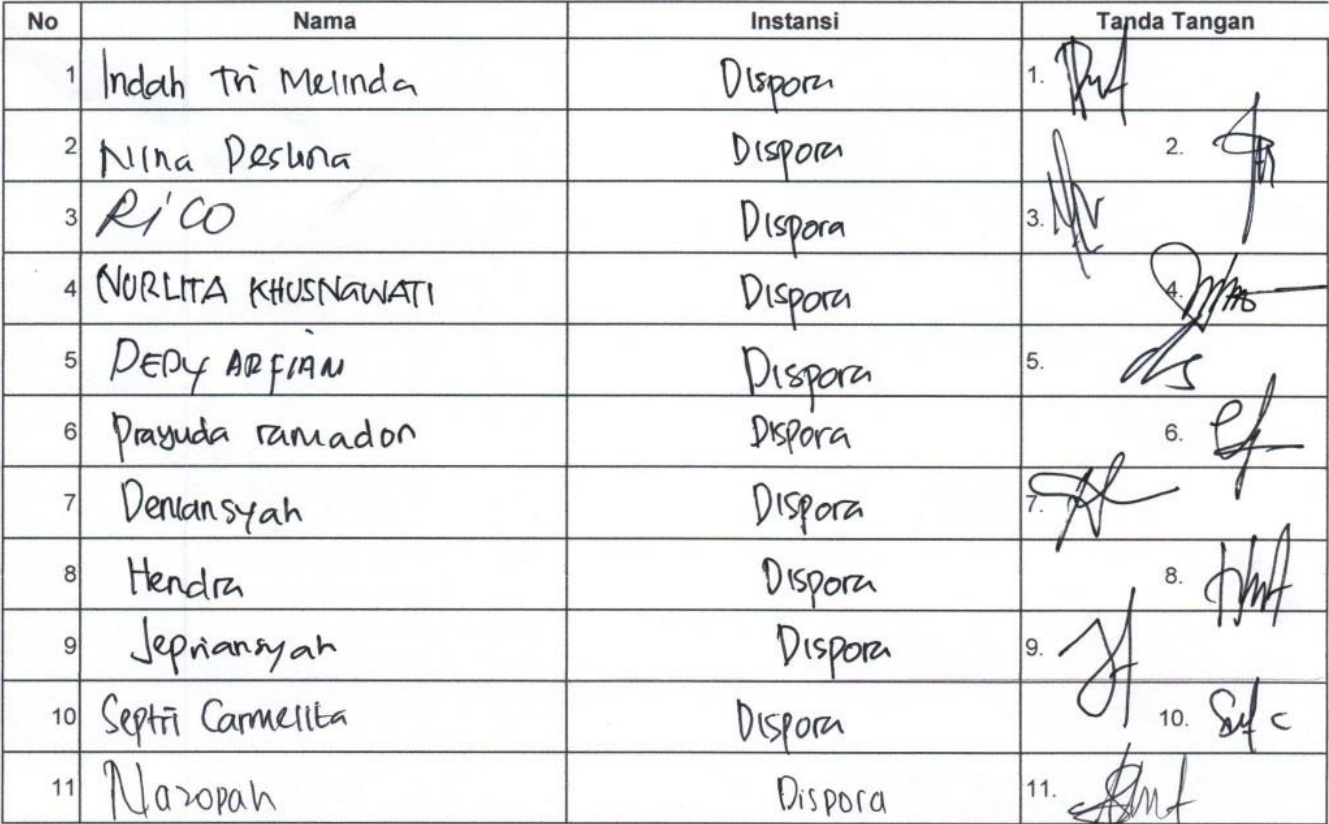 No Nama Instansi Tanda Tangan
1 Indah Tri Melinda Dispora 1.
2 Nina Dispora 2.
3 RICO Dispora 3.
4 NURLITA KHUSNAWATI Dispora 4.
5 DEDY ARFIAN Dispora 5.
6 Prayuda ramadon Dispora 6.
7 Deniansyah Dispora 7.
8 Hendra Dispora 8.
9 Jepriansyah Dispora 9.
10 Septri Carmelita Dispora 10.
11 Nazopah Dispora 11.